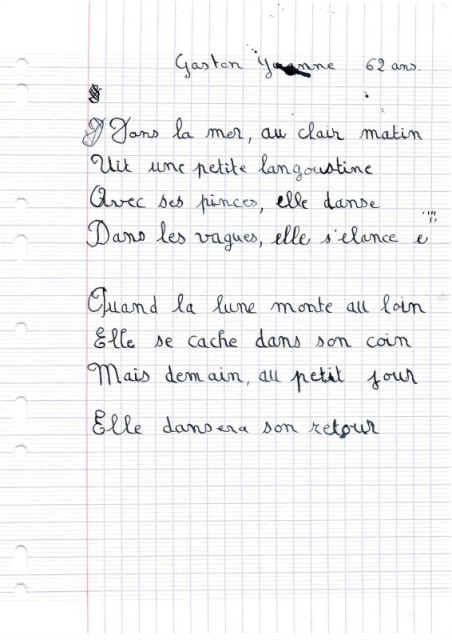 Gaston 62 ans.
Dans la mer, au clair matin
Vit une petite langoustine
Avec ses pinces, elle danse
Dans les vagues, elle s'elance e
Quand la lune monte au loin
Elle se cache dans son coin
Mais demain, au petit jour
Elle dansera son retour